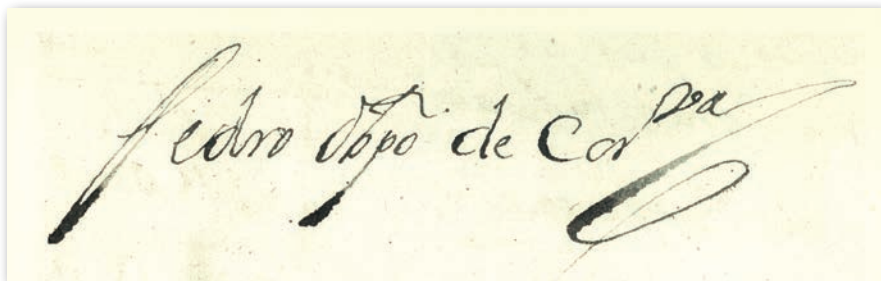 Pedro Obpõ de Corᵈᵛᵃ